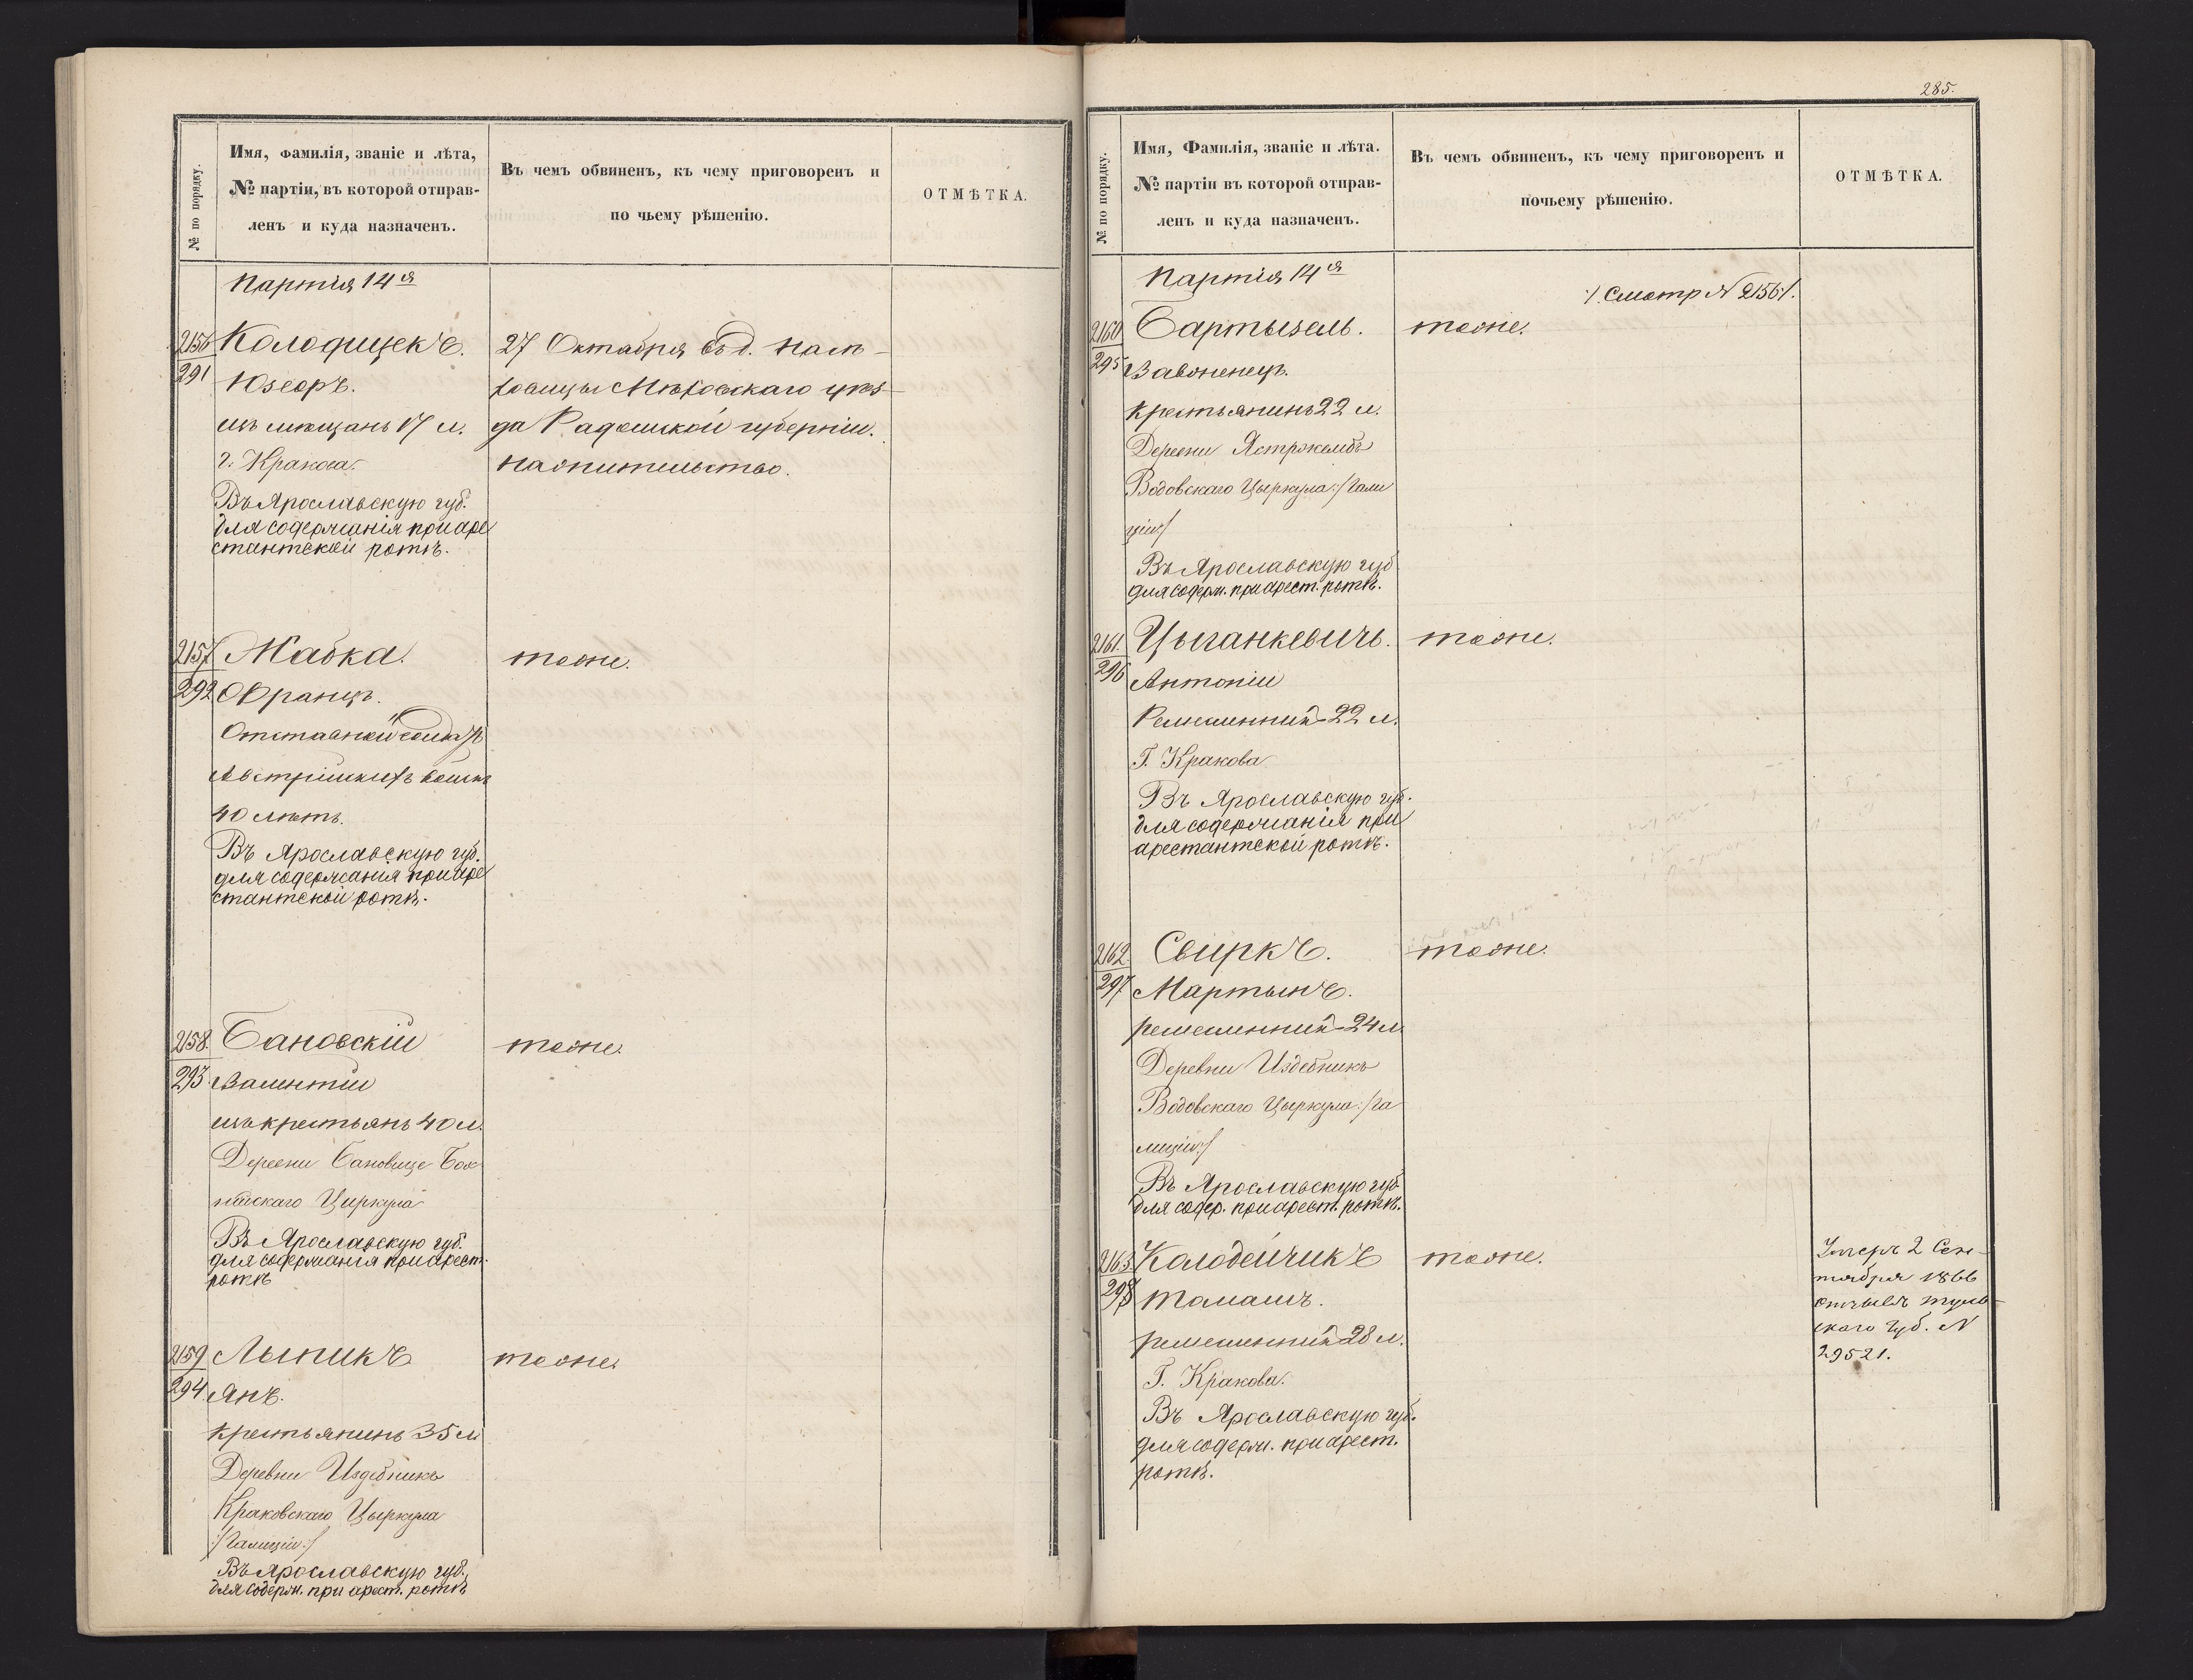 № по порядку.
Имя, Фамилія, званіе и лѣта,
№ партіи, въ которой отправ-
ленъ и куда назначенъ.
Въ чемъ обвиненъ, къ чему приговоренъ и
по чьему рѣшенію.
ОТМѢТКА.
Партія 14я
2156
291
Колодищекъ.
Юзефъ.
изъ мѣщанъ 17 л.
г. Кракова.
Въ Ярославскую губ.
для содержанія при аре
стантской ротѣ.
27 Октября въ д.
Мѣховскаго уѣз-
да Радомской губерніи.
2157
292
Жабка.
Францъ.
Отставной солдатъ
Австрійскихъ войскъ
40 лѣтъ.
Въ Ярославскую губ.
для содержанія при аре
стантской ротѣ.
тоже.
2158.
293
Бановскій
Валентій
изъ крестьянъ 40 л.
Деревни Бановице Бох
нійскаго Циркула
Въ Ярославскую губ.
для содержанія при арест.
ротѣ
тоже.
2159
294
Лыпикъ
Янъ.
крестьянинъ 35 л
Деревни Издебникъ
Краковскаго Цыркула
/:Галиціи:/
Въ Ярославскую губ.
для содерж. при арест. ротѣ
тоже.
285.
№ по порядку.
Имя, Фамилія, званіе и лѣта.
№ партіи въ которой отправ-
ленъ и куда назначенъ.
Въ чемъ обвиненъ, къ чему приговоренъ и
почьему рѣшенію.
ОТМѢТКА.
Партія 14я
/. Смотр № 2156 /.
2160
295
Бартызель.
крестьянинъ 22 л.
Деревни Ястржембъ
Водовскаго Цыркула:/Гали
ціи:/
Въ Ярославскую губ
для содерж. при арест. ротѣ.
тоже.
2161.
296
Цыганкевичъ.
Антоній
Ремесленникъ 22 л.
Г. Кракова
Въ Ярославскую губ.
для содержанія при
арестантской ротѣ.
тоже.
2162
297
Свиркъ.
Мартынъ.
ремесленникъ 24 л
Деревни Издебникъ
Водовскаго Цыркула:/Га
лиціи:/
Въ Ярославскую губ
для содер. при арест. ротѣ.
тоже.
2163
298
Колодейчикъ
Томашъ.
ремесленникъ 28 л.
Г. Кракова.
Въ Ярославскую губ.
для содерж. при арест.
ротѣ.
тоже.
Умеръ 2 Сен-
тября 1866
отзывъ Туль-
скаго Губ. №
29521.